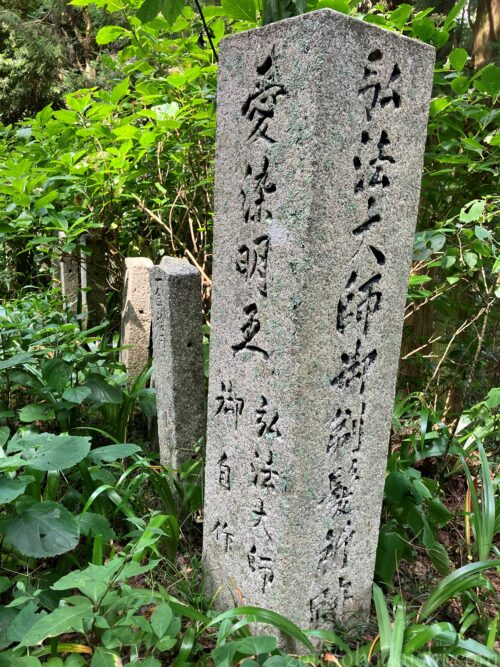 弘法大師御剃髪所跡
愛染明王
弘法大師
御自作